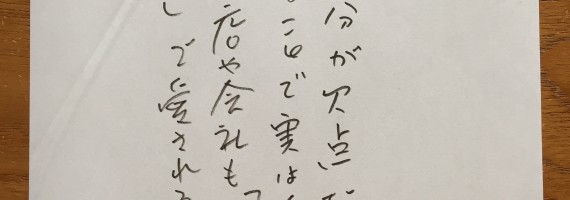 分が欠点だ
ことで実は
店や会社も
して愛される